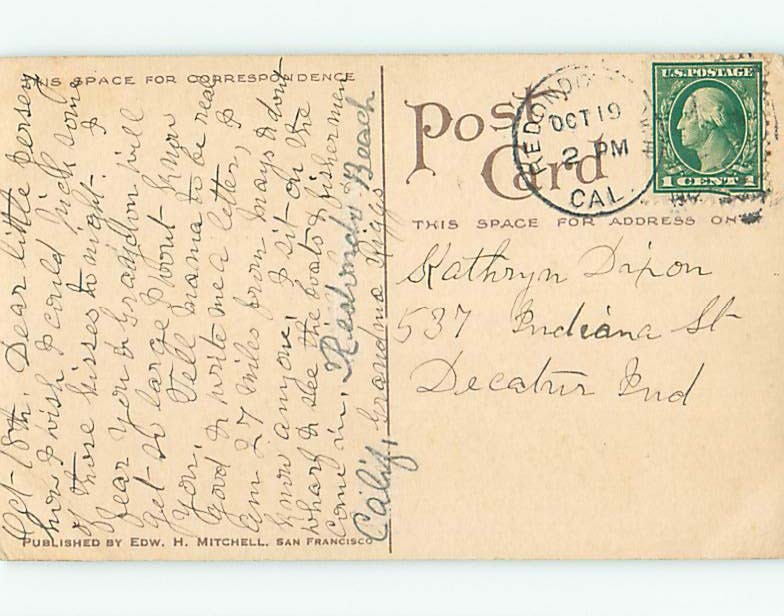 THIS SPACE FOR CORRESPONDENCE
Oct-18th. Dear little Jersey
how I wish I could pick some
of those kisses to night. I
fear you & Graydon will
get so large I wont know
you. Tell Mama to be real
good & write me a letter, I
am 27 miles from Mays & dont
know anyone. I sit on the
wharf & see the boats & fishermen
come in. Grandma Riggs
Redondo Beach
Calif,
PUBLISHED BY EDW. H. MITCHELL, SAN FRANCISCO
Post
Card
REDONDO
OCT 19
2 PM
CAL.
U.S. POSTAGE
1 CENT 1
THIS SPACE FOR ADDRESS
Kathryn Dixon
537 Indiana St
Decatur Ind